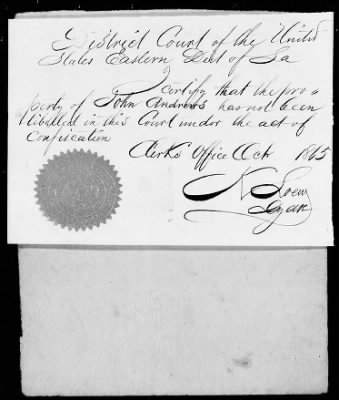 District Court of the United
States Eastern Dist of La
I certify that the pro-
perty of John Andrews has not been
libelled in this Court under the act of
Confiscation
Clerks Office Oct 1865
N Loew